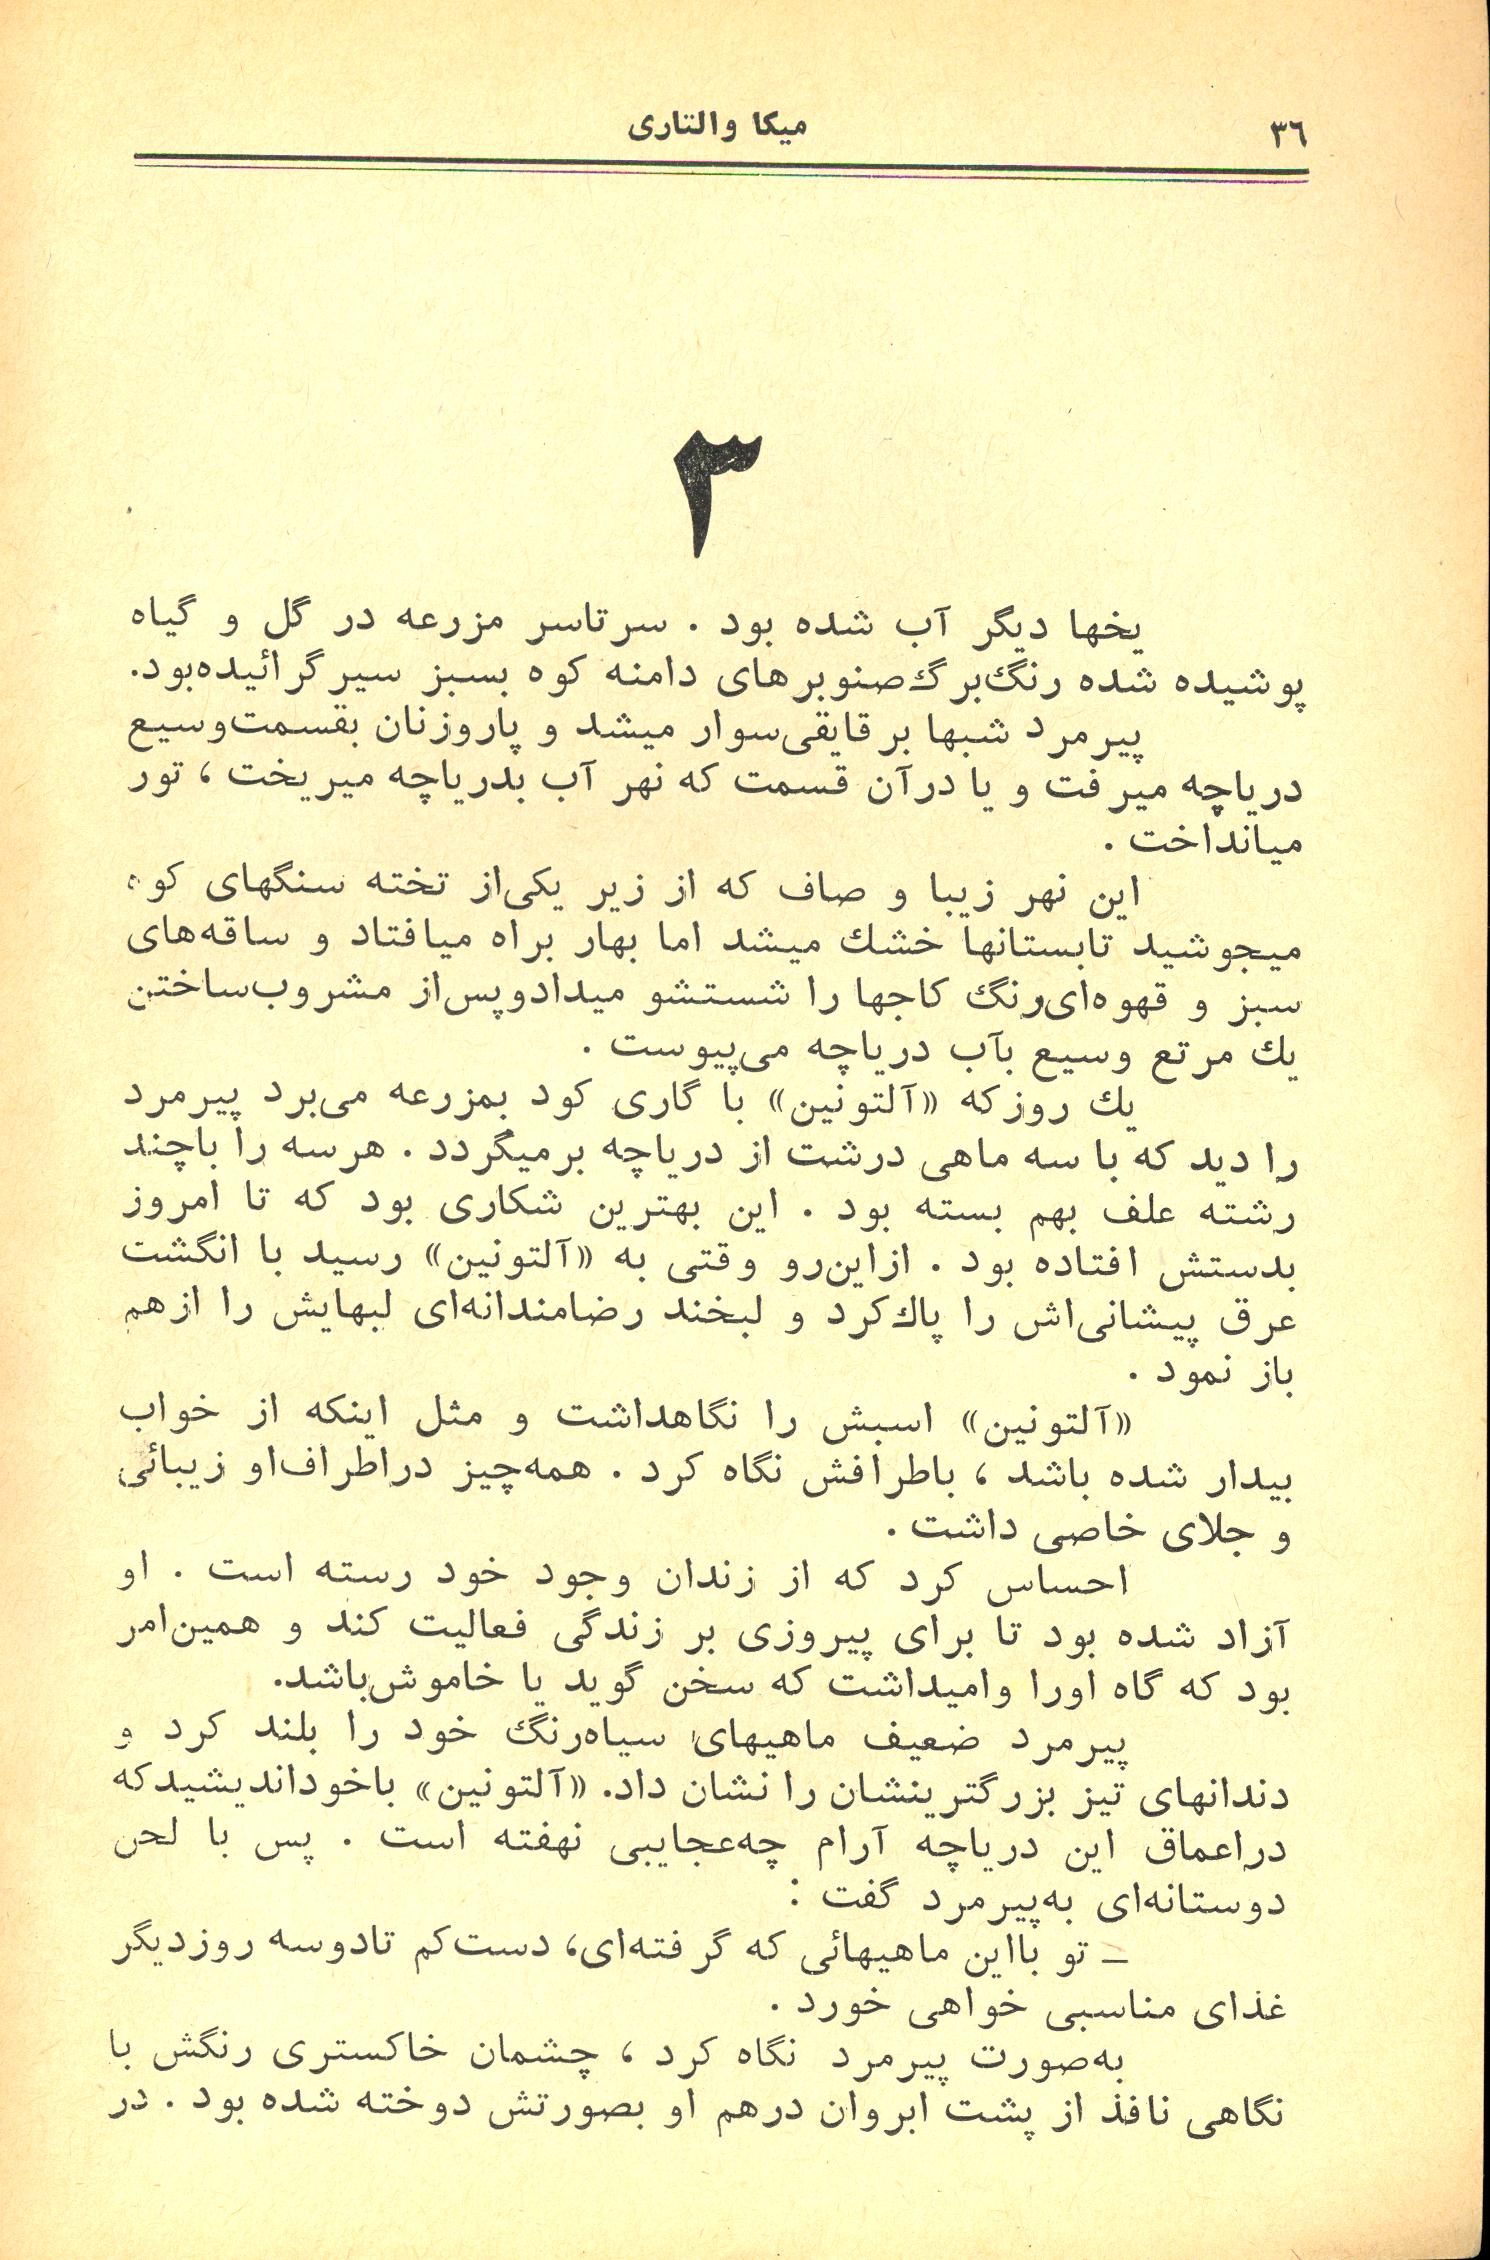 ۳۶
میکا والتاری
۳
یخها دیگر آب شده بود . سرتاسر مزرعه در گل و گیاه
پوشیده شده رنگ‌برگ‌صنوبرهای دامنه کوه بسبز سیر گرائیده‌بود.
پیرمرد شبها برقایقی‌سوار میشد و پاروزنان بقسمت‌وسیع
دریاچه میرفت و یا درآن قسمت که نهر آب بدریاچه میریخت ، تور
میانداخت .
این نهر زیبا و صاف که از زیر یکی‌از تخته سنگهای کوه
میجوشید تابستانها خشك میشد اما بهار براه میافتاد و ساقه‌های
سبز و قهوه‌ای‌رنگ کاجها را شستشو میدادوپس‌از مشروب‌ساختن
یك مرتع وسیع بآب دریاچه می‌پیوست .
یك روزکه «آلتونین» با گاری کود بمزرعه می‌برد پیرمرد
را دید که با سه ماهی درشت از دریاچه برمیگردد . هرسه را باچند
رشته علف بهم بسته بود . این بهترین شکاری بود که تا امروز
بدستش افتاده بود . ازاین‌رو وقتی به «آلتونین» رسید با انگشت
عرق پیشانی‌اش را پاك‌کرد و لبخند رضامندانه‌ای لبهایش را ازهم
باز نمود .
«آلتونین» اسبش را نگاهداشت و مثل اینکه از خواب
بیدار شده باشد ، باطرافش نگاه کرد . همه‌چیز دراطراف‌او زیبائی
و جلای خاصی داشت .
احساس کرد که از زندان وجود خود رسته است . او
آزاد شده بود تا برای پیروزی بر زندگی فعالیت کند و همین‌امر
بود که گاه اورا وامیداشت که سخن گوید یا خاموش‌باشد.
پیرمرد ضعیف ماهیهای سیاه‌رنگ خود را بلند کرد و
دندانهای تیز بزرگترینشان را نشان داد. «آلتونین» باخوداندیشیدکه
دراعماق این دریاچه آرام چه‌عجایبی نهفته است . پس با لحن
دوستانه‌ای به‌پیرمرد گفت :
ـ تو بااین ماهیهائی که گرفته‌ای، دست‌کم تادوسه روزدیگر
غذای مناسبی خواهی خورد .
به‌صورت پیرمرد نگاه کرد ، چشمان خاکستری رنگش با
نگاهی نافذ از پشت ابروان درهم او بصورتش دوخته شده بود . در